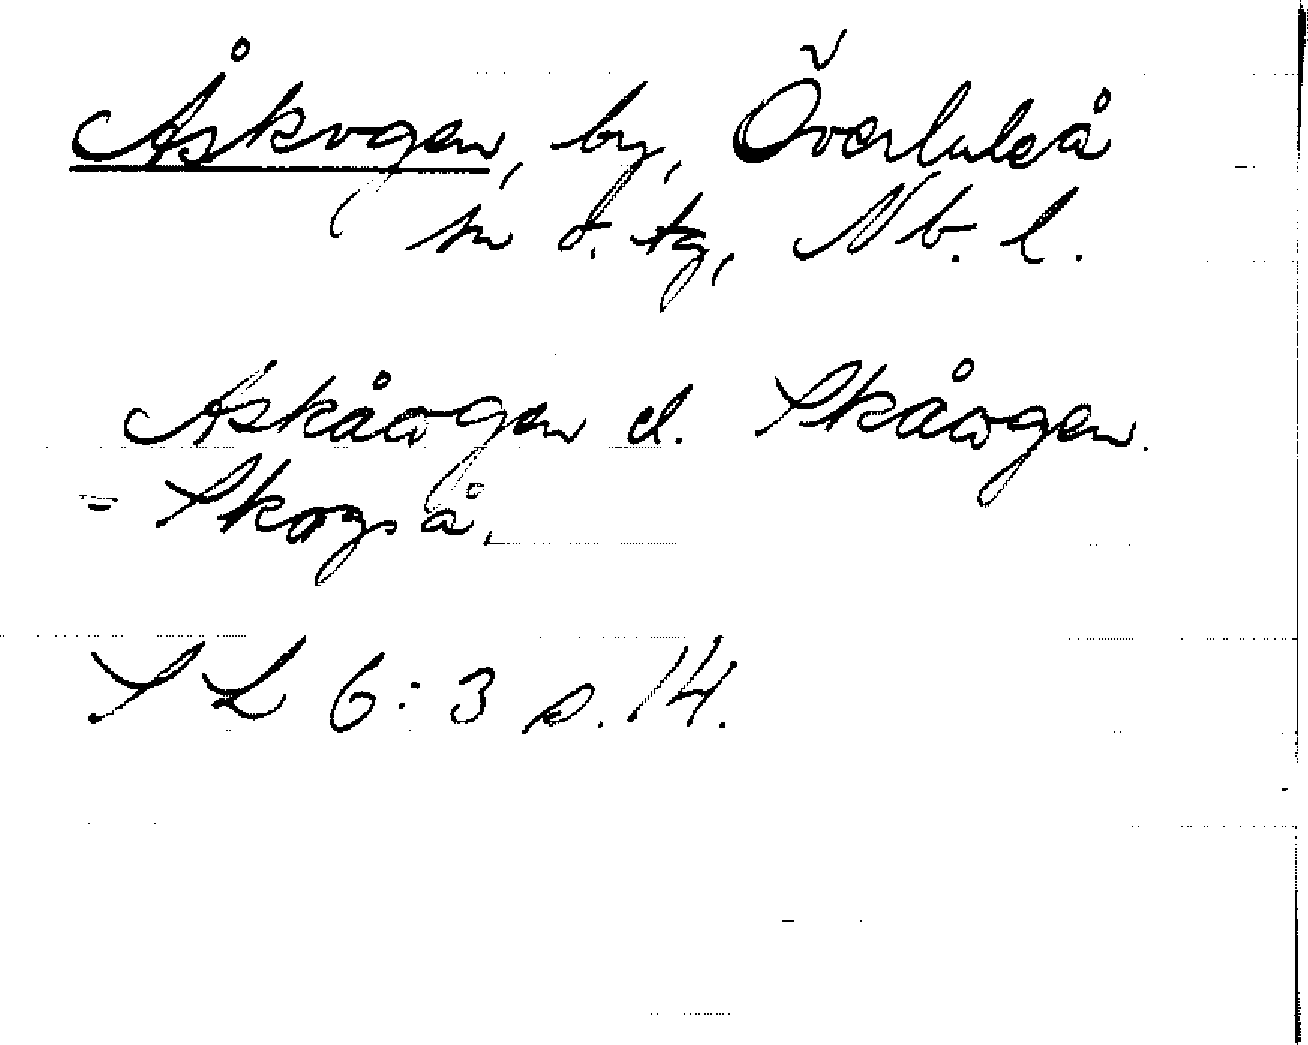 Åskogen, by, Överluleå
sn o. tg, Nb. l.
Askåwgen el. Skåwgen.
= Skogså.
SL 6:3 s. 14.